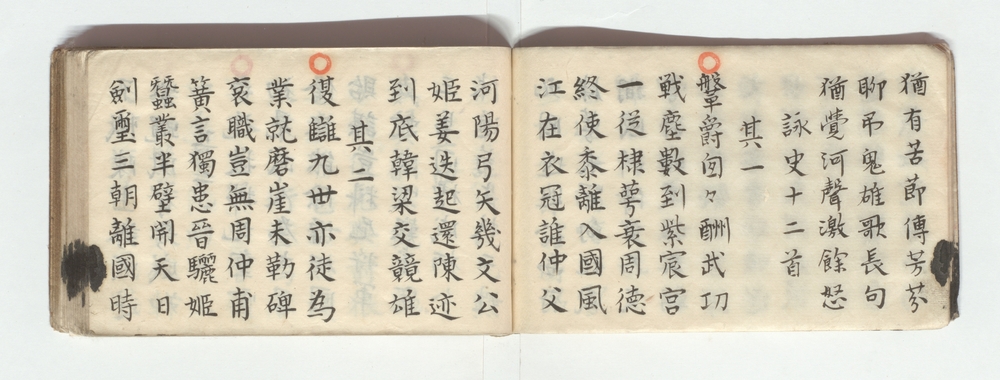 猶有苦節傳芳芬
聊弔鬼雄歌長句
猶覺河聲激餘怒
詠史十二首
其一
鞶爵匈々酬武功
戦塵數到紫宸宮
一従棣萼衰周德
終使黍離入國風
江在衣冠誰仲父
河陽弓矢幾文公
姬姜迭起還陳迹
到底韓梁交競雄
其二
復讎九世亦徒為
業就磨崖未勒碑
袞職豈無周仲甫
簧言獨患晉驪姬
蠶叢半壁開天日
劍璽三朝離國時